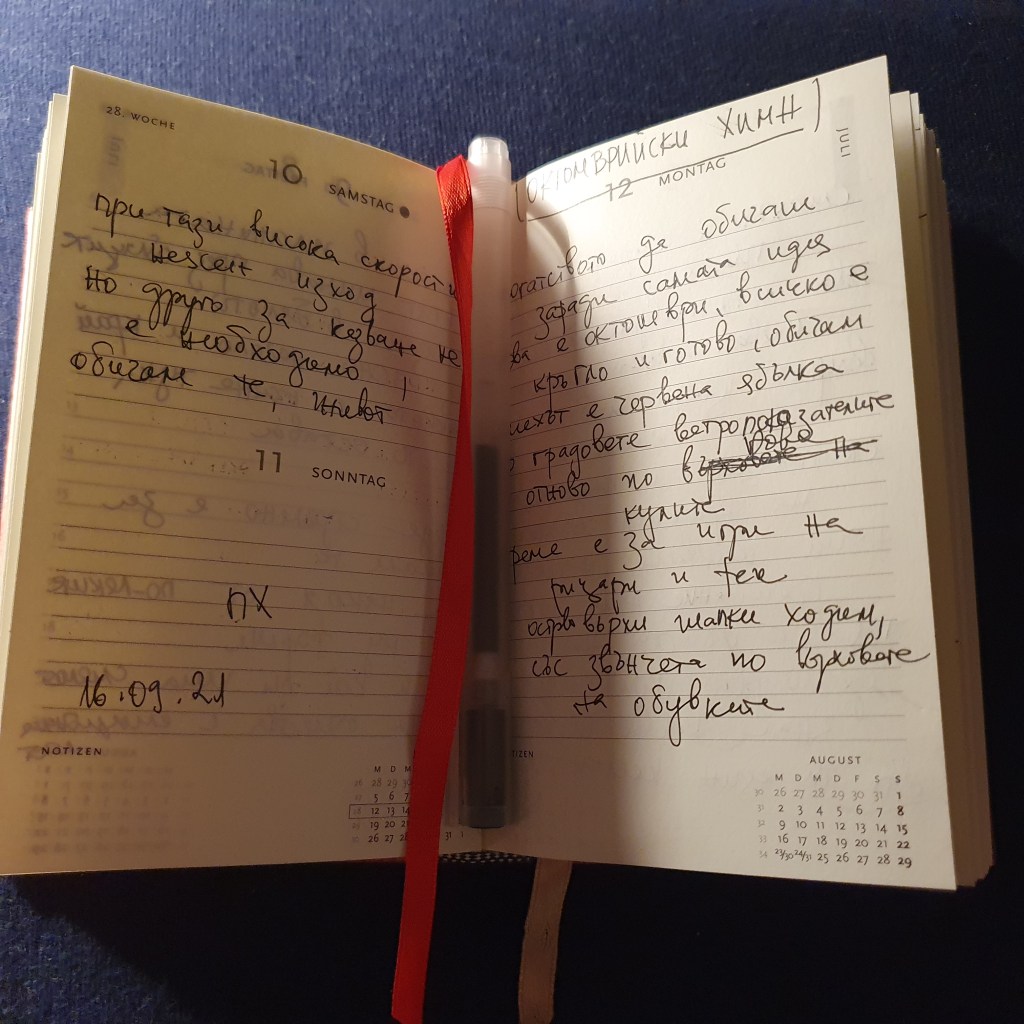 28. WOCHE
10 SAMSTAG
при тази висока скорост и
неясен изход
но друго за казване не
е необходимо
обичам те, живот!
11 SONNTAG
ПХ
16.09.21
NOTIZEN
M D M
28 29 30
5 6 7
12 13 14
19 20 21
26 27 28 31 1
(ОКТОМВРИЙСКИ ХИМН)
12 MONTAG
JULI
огатството да обичаш
заради самата идея
ва е октомври, всичко е
кръгло и готово, обичам
мехът е червена ябълка
градовете ветропоказателите
отново по върховете на
купите
реме е за игри на
рицари и тек
островърхи шапки ходим,
със звънчета по върховете
на обувките
IZEN
AUGUST
M D M D F S S
30 26 27 28 29 30 31 1
31 2 3 4 5 6 7 8
32 9 10 11 12 13 14 15
33 16 17 18 19 20 21 22
34 23/30 24/31 25 26 27 28 29